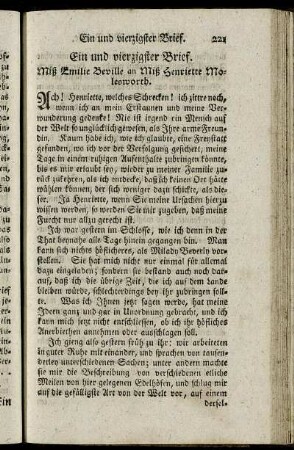 Ein und vierzigster Brief. 221
Ein und vierzigster Brief.
Miß Emilie Beville an Miß Henriette Mo-
lesworth.
Ach! Henriette, welches Schrecken! ich zittre noch,
wenn ich an mein Erstaunen und meine Ver-
wunderung gedenke! Nie ist irgend ein Mensch auf
der Welt so unglücklich gewesen, als Ihre arme Freun-
din. Kaum habe ich, wie ich glaubte, eine Freystatt
gefunden, wo ich vor der Verfolgung gesichert, meine
Tage in einem ruhigen Aufenthalte zubringen könnte,
bis es mir erlaubt seyn würde, wieder zu meiner Familie zu-
rück zukehren, als ich entdecke, daß ich keinen Ort hätte
wählen können, der sich weniger dazu schickte, als die-
ser. Ja Henriette, wenn Sie meine Ursachen hierzu
wissen werden, so werden Sie mir zugeben, daß meine
Furcht nur allzu gerecht ist.
Ich war gestern im Schlosse, wie ich denn in der
That beynahe alle Tage hinein gegangen bin. Man
kann sich nichts höflicheres, als Milady Beverly vor-
stellen. Sie hat mich nicht nur einmal für allemal
dazu eingeladen; sondern sie bestand auch noch dar-
auf, daß ich die übrige Zeit, die ich auf dem Lande
bleiben würde, schlechterdings bey ihr zubringen soll-
te. Was ich Ihnen jetzt sagen werde, hat meine
Ideen ganz und gar in Unordnung gebracht, und ich
kann mich jetzt nicht entschliessen, ob ich ihr höfliches
Anerbiethen annehmen oder ausschlagen soll.
Ich gieng also gestern früh zu ihr; wir arbeiteten
in guter Ruhe mit einander, und sprachen von tausen-
derley unterschiedenen Sachen; unter andern machte
sie mir die Beschreibung von verschiedenen etliche
Meilen von hier gelegenen Edelhöfen, und schlug mir
auf die gefälligste Art von der Welt vor, auf einem
dersel-